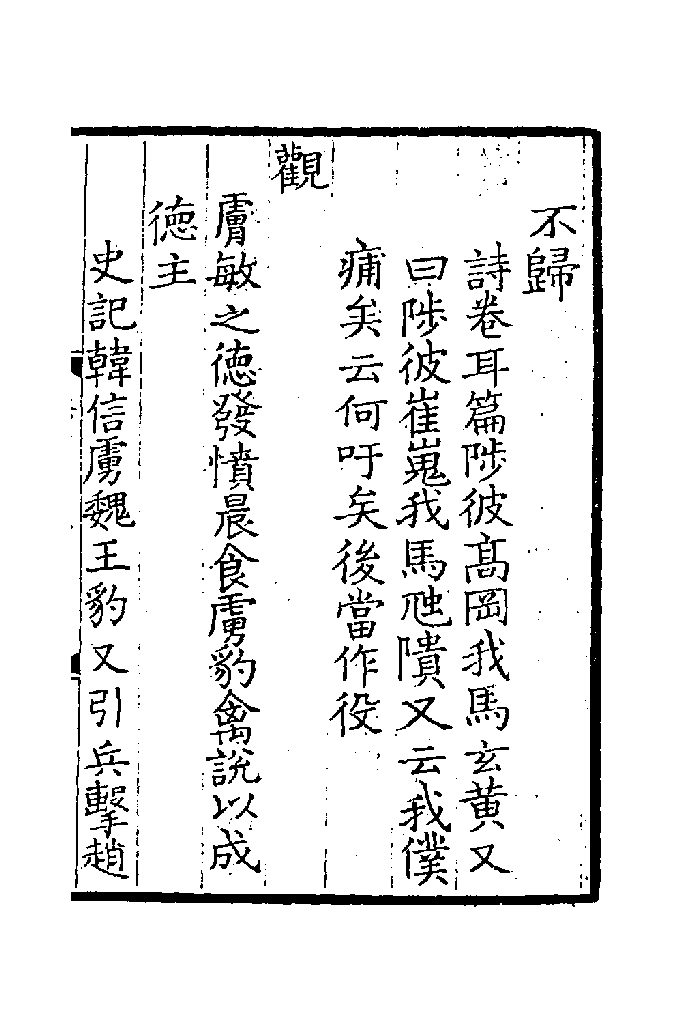 不歸
詩卷耳篇陟彼髙岡我馬玄黄又
曰陟彼崔嵬我馬虺隤又云我僕
痡矣云何吁矣後當作役
觀
膚敏之徳發憤晨食虜豹禽說以成
徳主
史記韓信虜魏王豹又引兵擊趙